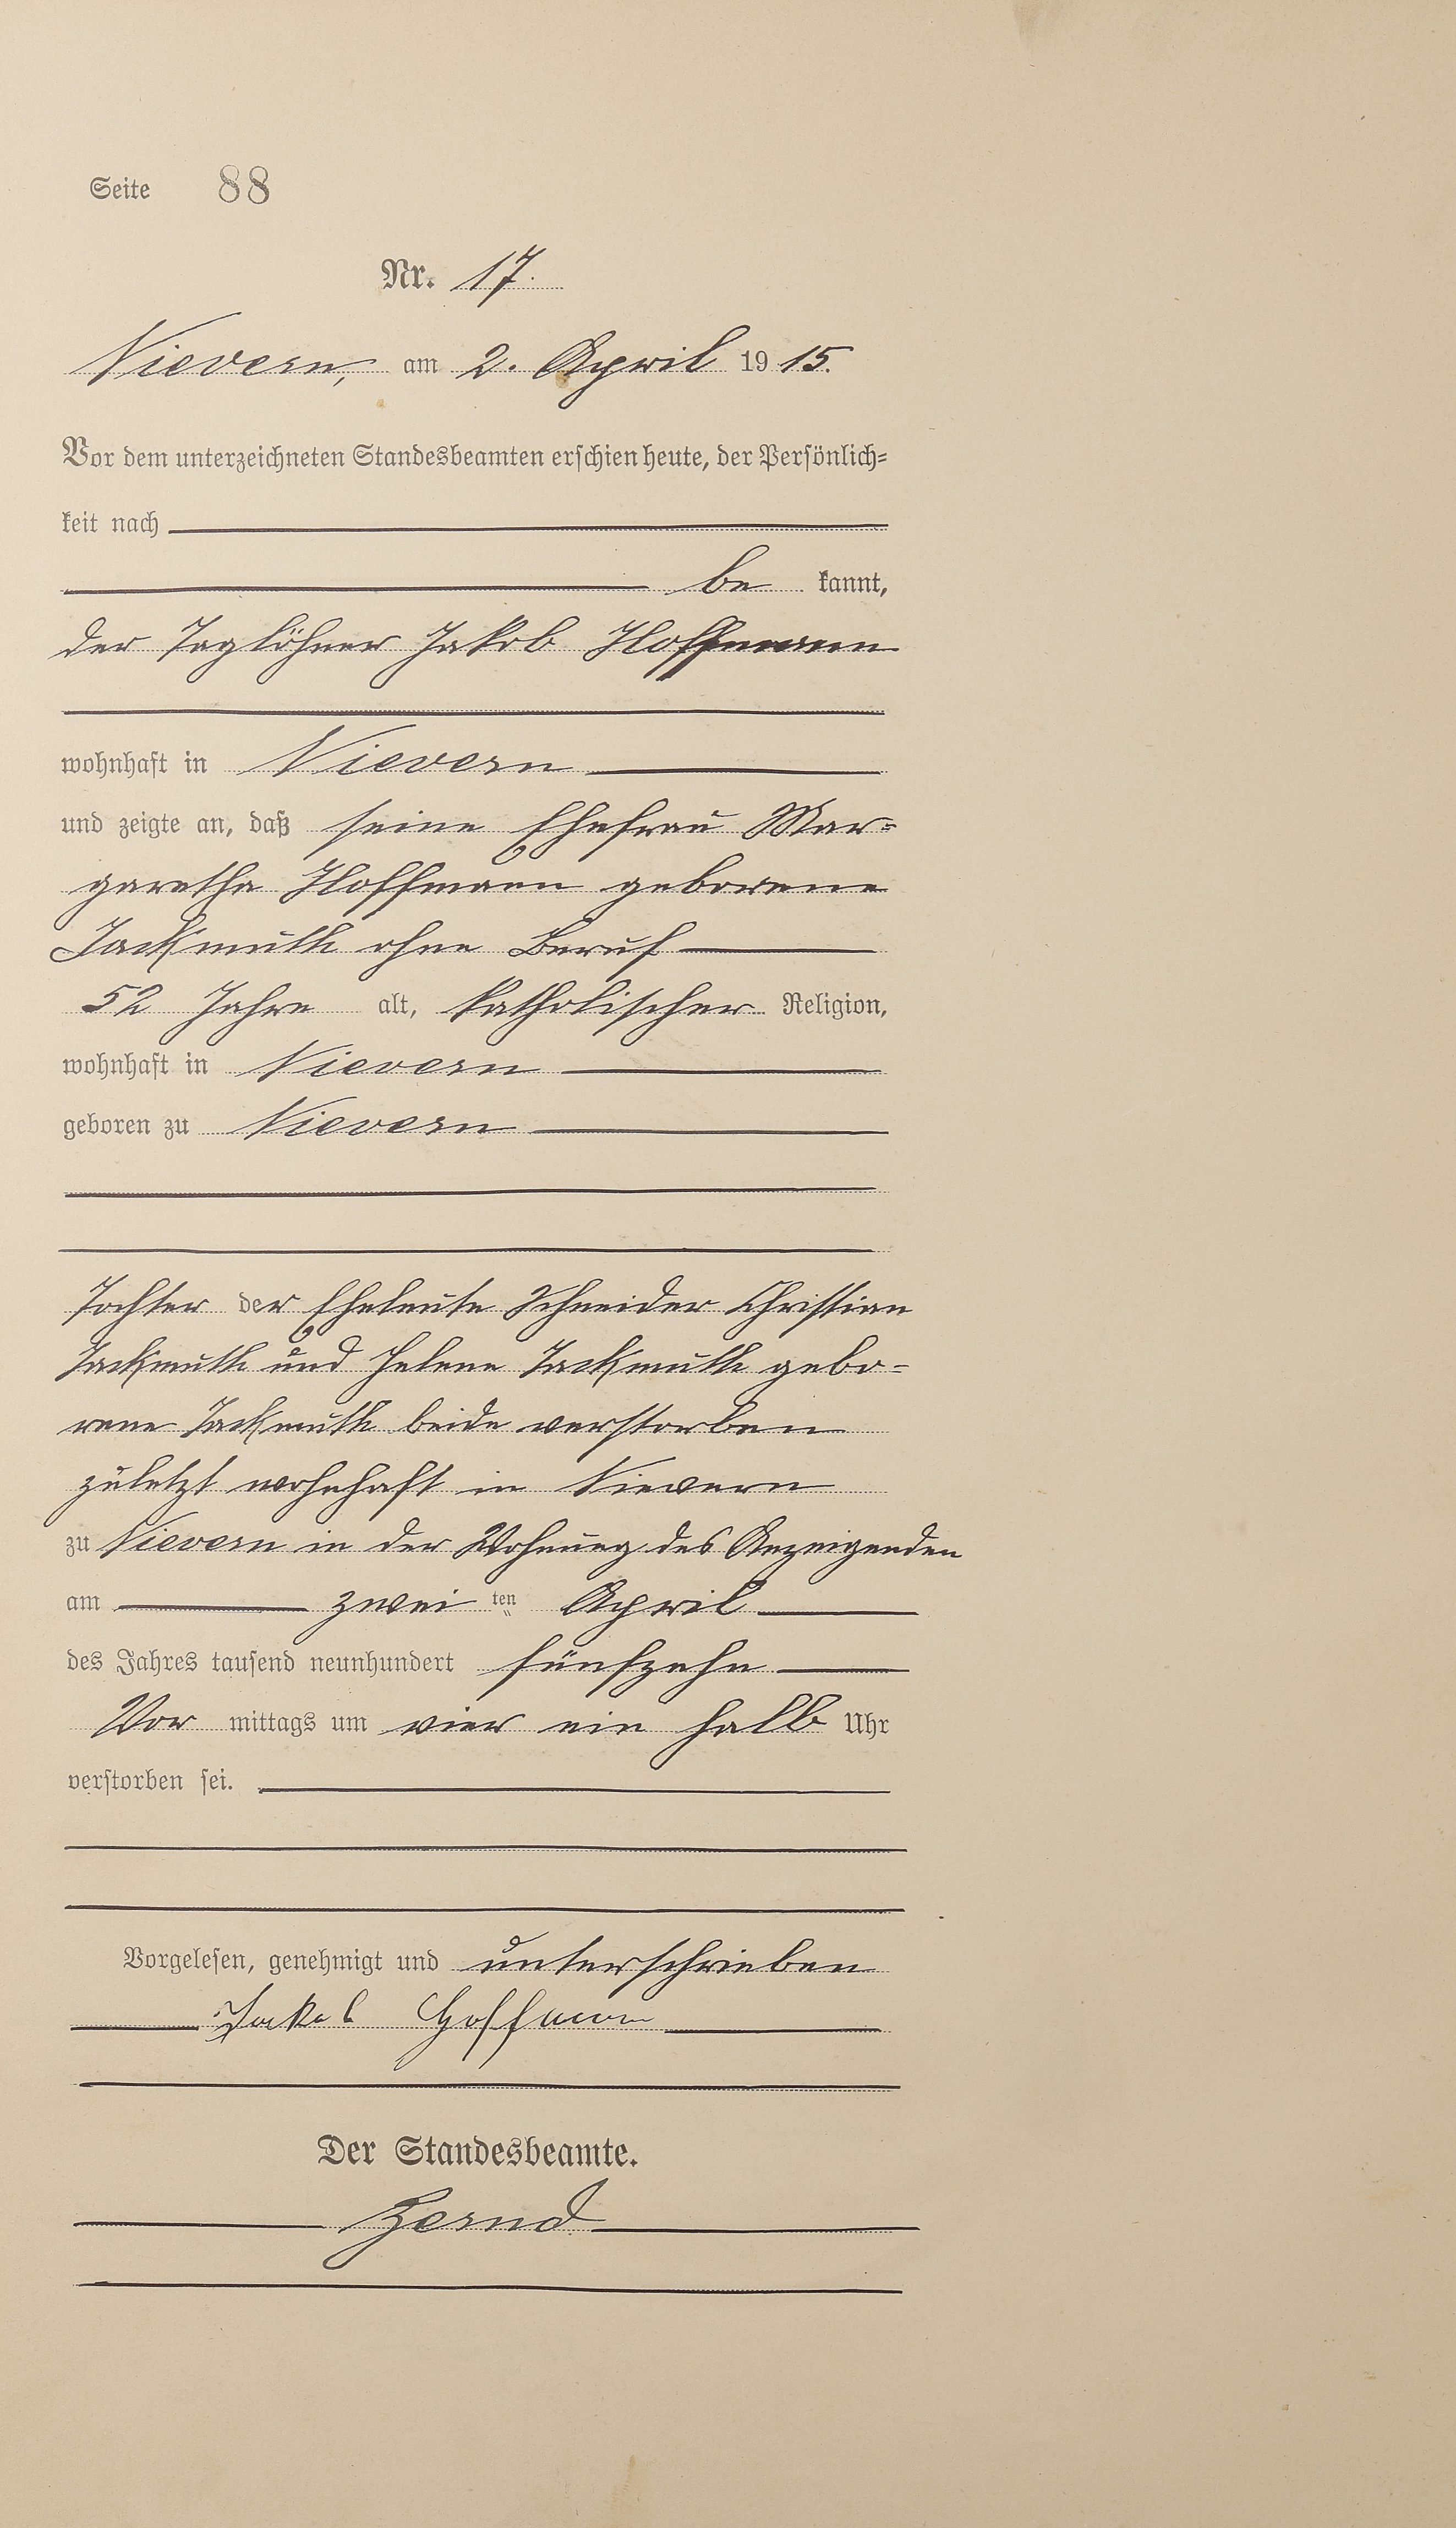 Seite 88
Nr. 17.
Nievern, am 2. April 1915.
Vor dem unterzeichneten Standesbeamten erschien heute, der Persönlich=
keit nach
be kannt,
der Taglöhner Jakob Hoffmann
wohnhaft in Nievern
und zeigte an, daß seine Ehefrau Mar=
garetha Hoffmann geborene
Jackmuth ohne Beruf
52 Jahre alt, katholischer Religion,
wohnhaft in Nievern
geboren zu Nievern
Tochter der Eheleute Schneider Christian
Jackmuth und Helene Jackmuth gebo=
rene Jackmuth beide verstorben
zuletzt wohnhaft in Nievern
zu Nievern in der Wohnung des Anzeigenden
am zwei ten April
des Jahres tausend neunhundert fünfzehn
Vor mittags um vier ein halb Uhr
verstorben sei.
Vorgelesen, genehmigt und unterschrieben
Jakob Hoffmann
Der Standesbeamte.